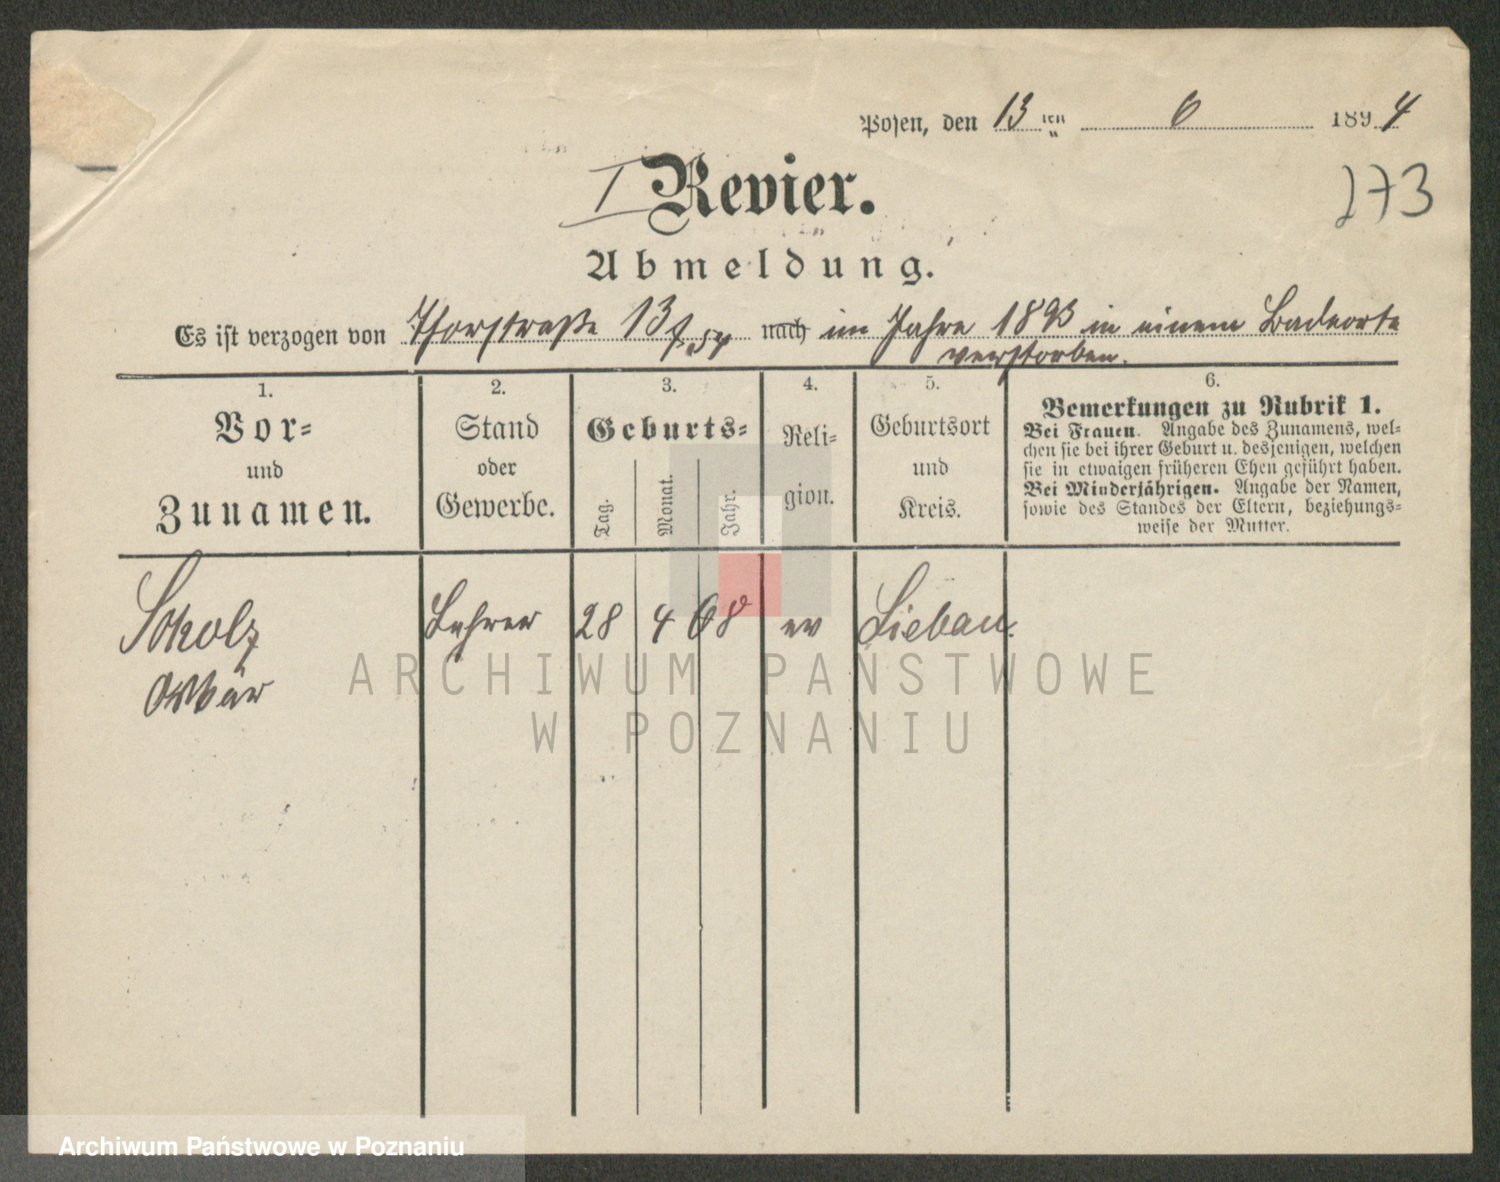 Posen, den 13 ten 6 1894
I Revier.
273
Abmeldung.
Es ist verzogen von Thorstraße 13 nach im Jahre 1893 in einem Badeorte
verstorben.
1.
Vor-
und
Zunamen.
2.
Stand
oder
Gewerbe.
3.
Geburts-
Tag.
Monat.
Jahr.
4.
Reli-
gion.
5.
Geburtsort
und
Kreis.
6.
Bemerkungen zu Rubrik 1.
Bei Frauen. Angabe des Zunamens, wel-
chen sie bei ihrer Geburt u. desjenigen, welchen
sie in etwaigen früheren Ehen geführt haben.
Bei Minderjährigen. Angabe der Namen,
sowie des Standes der Eltern, beziehungs-
weise der Mutter.
Lehrer 28 4 68 ev Liebau.
ARCHIWUM PAŃSTWOWE
W POZNANIU
Archiwum Państwowe w Poznaniu